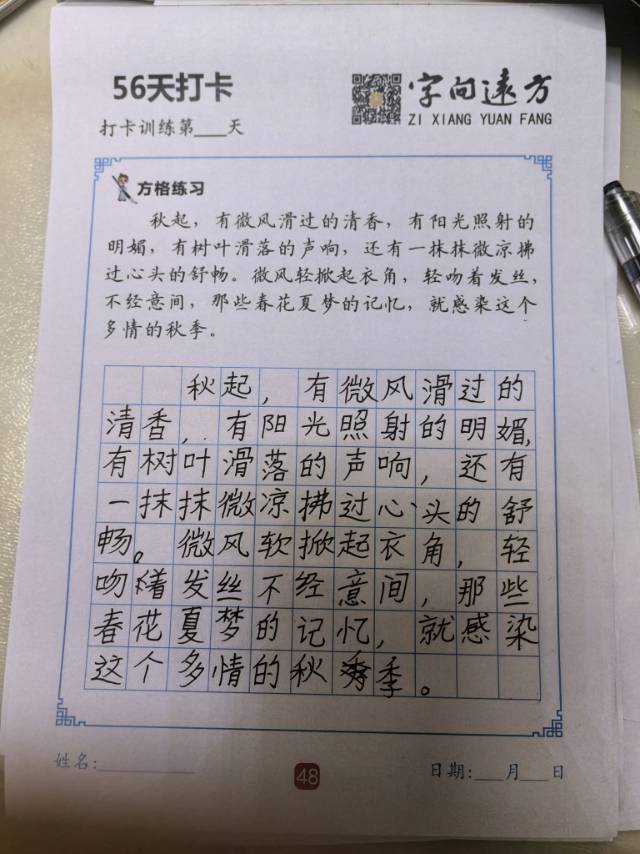 56天打卡
打卡训练第___天
字向远方
ZI XIANG YUAN FANG
方格练习
秋起，有微风滑过的清香，有阳光照射的
明媚，有树叶滑落的声响，还有一抹抹微凉拂
过心头的舒畅。微风轻掀起衣角，轻吻着发丝，
不经意间，那些春花夏梦的记忆，就感染这个
多情的秋季。
秋起，有微风滑过的
清香，有阳光照射的明媚，
有树叶滑落的声响，还有
一抹抹微凉拂过心头的舒
畅。微风软掀起衣角，轻
吻着发丝不经意间，那些
春花夏梦的记忆，就感染
这个多情的秋季。
姓名：
48
日期：___月___日